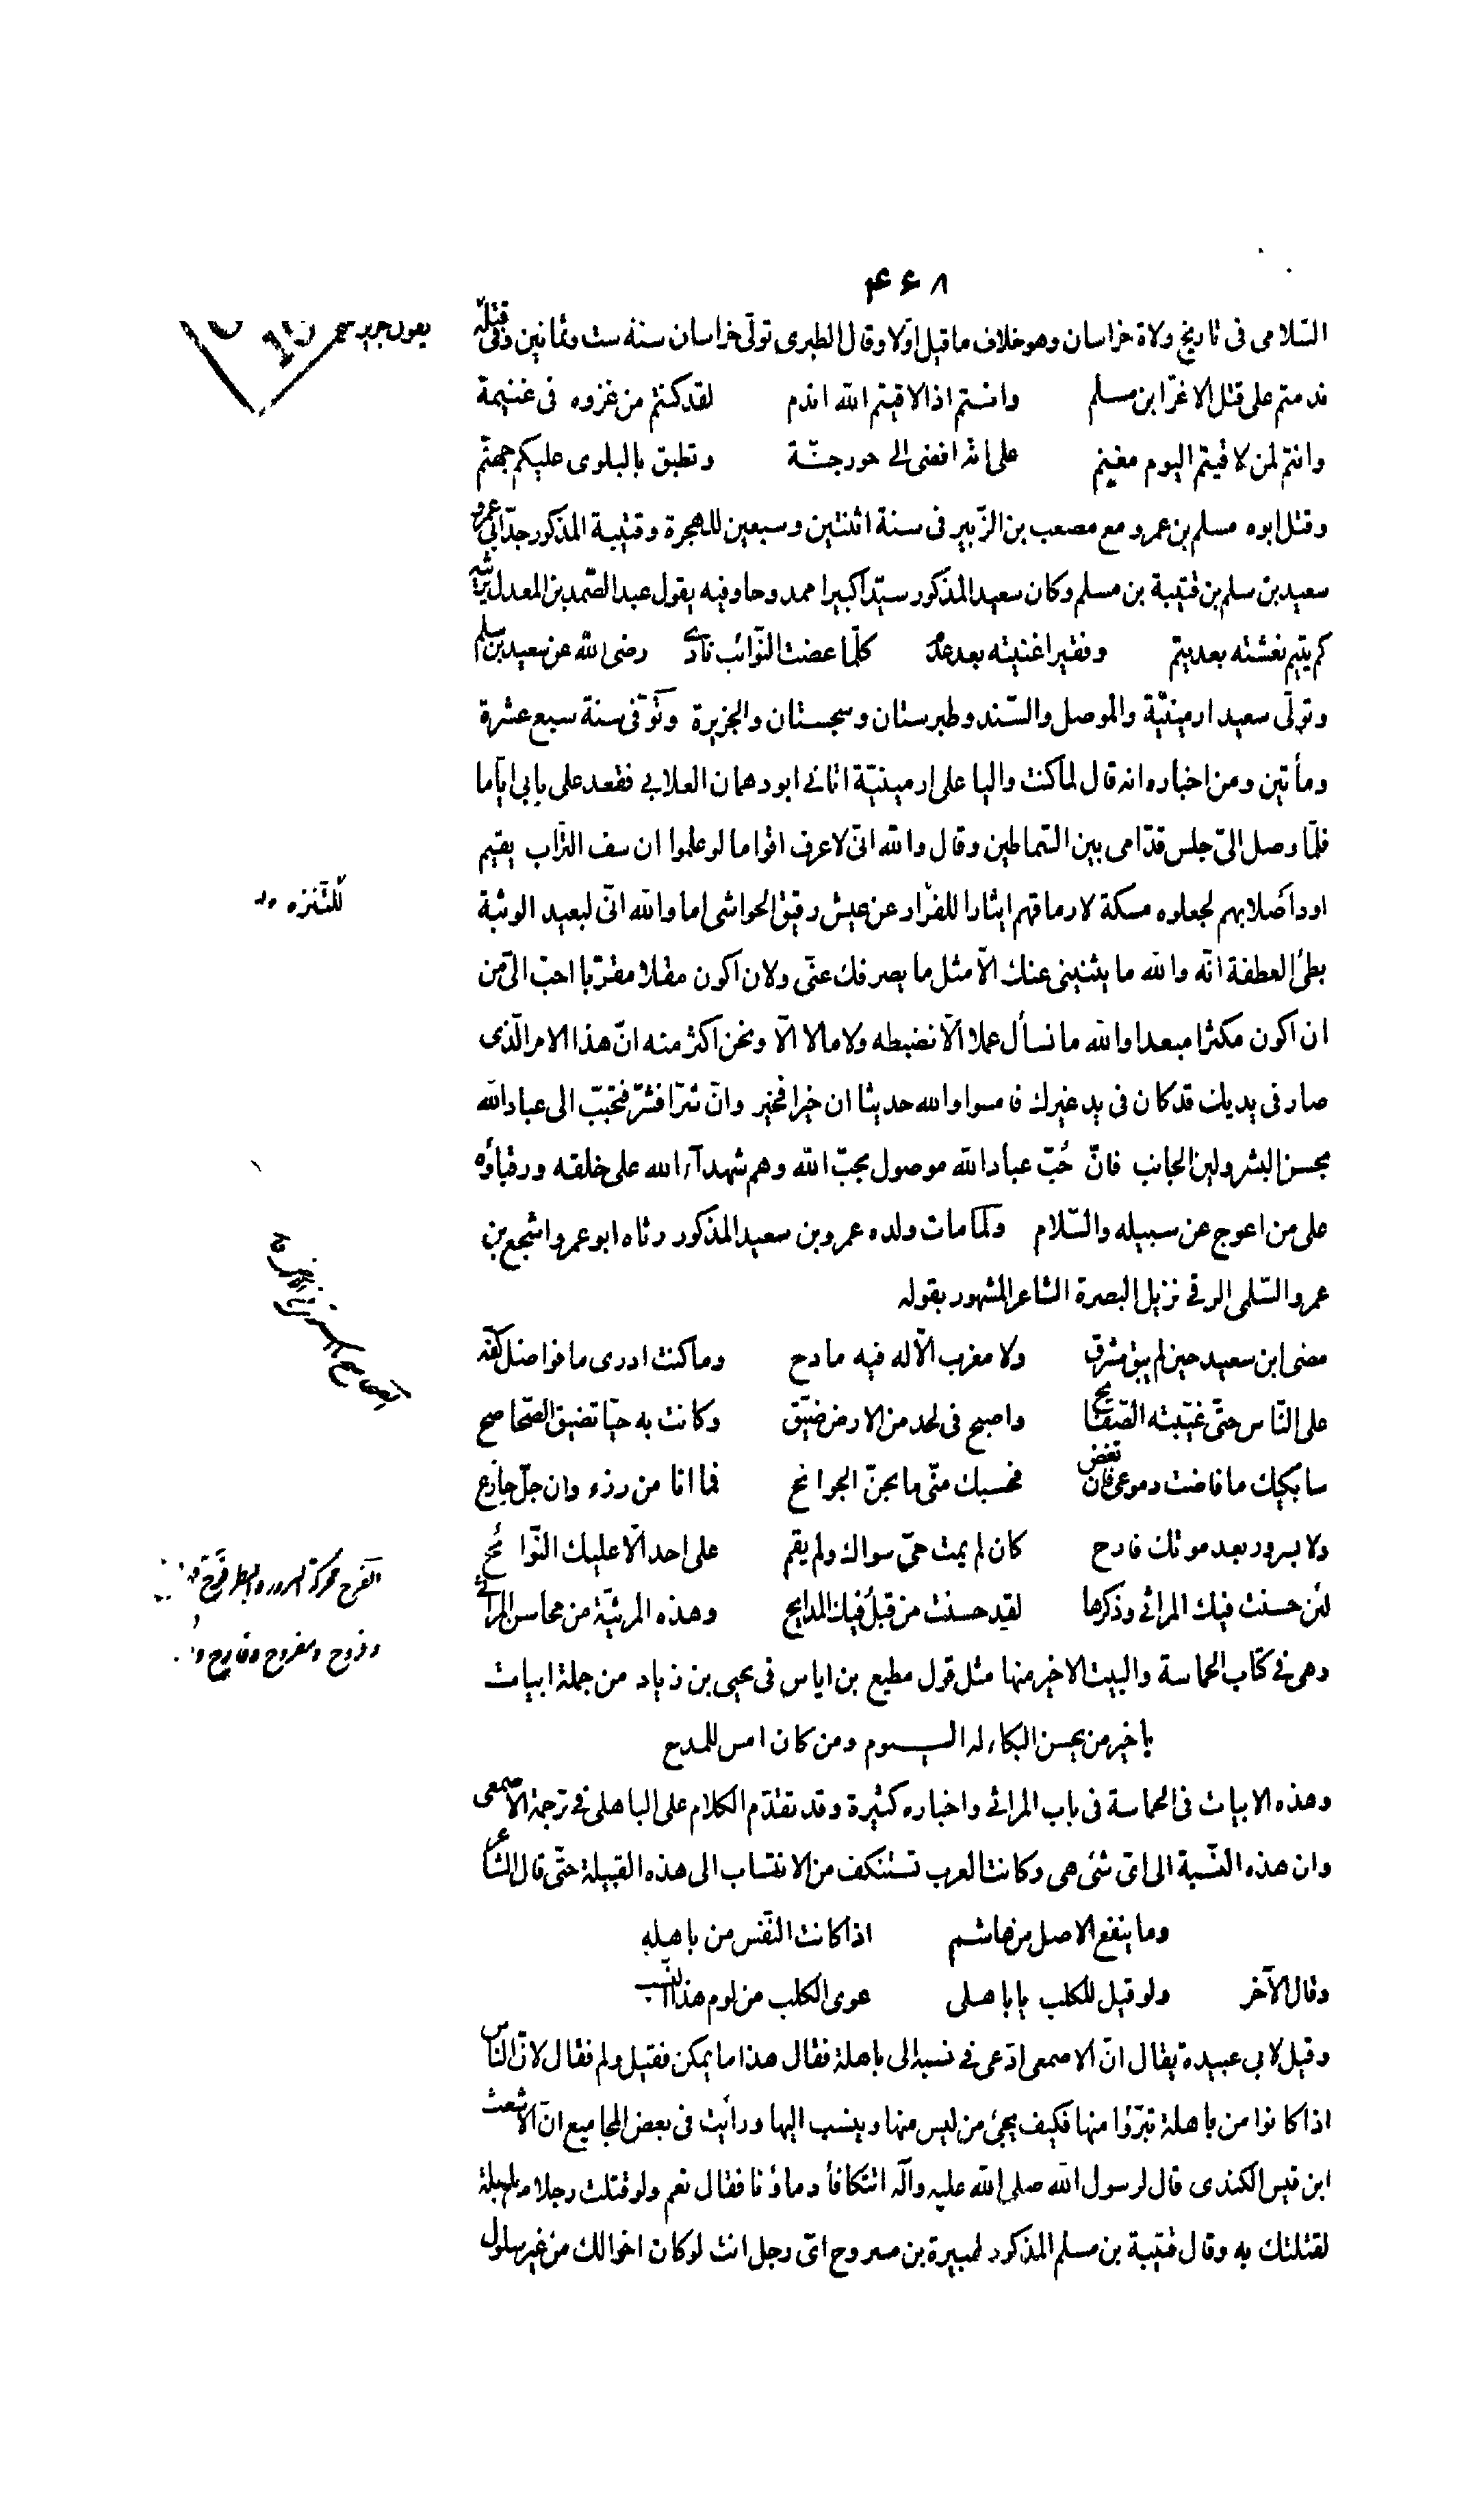 ۴۶۸
السّلامى فى تاريخ ولاة خراسان وهو خلاف ما قيل اوّلا وقال الطبرى تولّى خراسان سنة ست وثمانين وفى قتله
يقول جرير
ندمتم على قتل الاغرّ ابن مسلم وانتم اذا لاقيتم الله اندم لقد كنتم من غزوه فى غنيمة
وانتم لمن لاقيتم اليوم مغنم على انّه افضى الى حور جنّة وتطبق بالبلوى عليكم جهنّم
وقتل ابوه مسلم بن عمرو مع مصعب بن الزّبير فى سنة اثنتين وسبعين للهجرة وقتيبة المذكور جدّ ابى عمرو
سعيد بن سلم بن قتيبة بن مسلم وكان سعيد المذكور سيّدا كبيرا ممدوحا وفيه يقول عبد الصّمد بن المعدل يرثيه
كم يتيم نعشته بعد يتم وفقير اغنيته بعد عدم كلّما عضت النّوائب نادى رضى الله عن سعيد بن سلم
وتولّى سعيد ارمينيّة والموصل والسّند وطبرستان وسجستان والجزيرة وتوّفى سنة سبع عشرة
ومأتين ومن اخباره انه قال لما كنت واليا على ارمينيّة اتانى ابو دهمان الغلابى فقعد على بابى ايّاما
فلمّا وصل الىّ جلس قدّامى بين السّماطين وقال والله انّى لاعرف اقواما لو علموا ان سف التّراب يقيم
اود اصلابهم لجعلوه مسكة لارماقهم ايثارا للفرار عن عيش رقيق الحواشى اما والله انّى لبعيد الوثبة
للتنزه
بطئ العطفة انّه والله ما يثنينى عنك الّا مثل ما يصرفك عنّى ولان اكون مقلا مقرّبا احبّ الىّ من
ان اكون مكثرا مبعدا والله ما نسأل عملا الّا نضبطه ولا مالا الّا ونحن اكثر منه انّ هذا الامر الّذى
صار فى يديك قد كان فى يد غيرك فامسوا والله حديثا ان خيرا فخير وان شرّا فشرّ فتحبّب الى عباد الله
بحسن البشر ولين الجانب فانّ حُبّ عباد الله موصول بحبّ الله وهم شهدآء الله على خلقه ورقباؤه
على من اعوج عن سبيله والسّلام ولمّا مات ولده عمرو بن سعيد المذكور رثاه ابو عمرو اشجع بن
عمرو السّلمى الرقى نزيل البصرة الشاعر المشهور بقوله
مضى ابن سعيد حين لم يبق مشرق ولا مغرب الّا له فيه مادح وما كنت ادرى ما فواضل كفّه
على النّاس حتّى غيّبته الصّفائح واصبح فى لحد من الارض ضيّق وكانت به حيّا تضيق الصّحاصح
سابكيك ما فاضت دموعى فان تغض فحسبك منّى ما يجنّ الجوانح فما انا من رزء وان جلّ جازع
ولا بسرور بعد موتك فارح كان لم يمت حىّ سواك ولم يقم على احد الّا عليك النّوائح
الفرح محركة السرور والبطر
لئن حسنت فيك المراثى وذكرها لقد حسنت من قبل فيك المدايح وهذه المرثيّة من محاسن المراثى
وفروح ومفروح وفارح
وهى فى كتاب الحماسة والبيت الاخير منها مثل قول مطيع بن اياس فى يحيى بن زياد من جملة ابيات
يا خير من يحسن البكاء له اليـوم ومن كان امس للمدح
وهذه الابيات فى الحماسة فى باب المراثى واخباره كثيرة وقد تقدّم الكلام على الباهلى فى ترجمة الاصمعى
وان هذه النّسبة الى اىّ شئ هى وكانت العرب تستنكف من الانتساب الى هذه القبيلة حتّى قال الشاعر
وما ينفع الاصل من هاشم اذا كانت النّفس من باهله
وقال الآخر ولو قيل للكلب يا باهلى عوى الكلب من لوم هذا النّسب
وقيل لابى عبيدة يقال انّ الاصمعى ادّعى فى نسبه الى باهلة فقال هذا ما يمكن فقيل ولم فقال لانّ النّاس
اذا كانوا من باهلة تبرّؤا منها فكيف يجئ من ليس منها وينسب اليها ورأيت فى بعض المجاميع انّ الاشعث
ابن قيس الكندى قال لرسول الله صلى الله عليه وآله اتتكافأ دماؤنا فقال نعم ولو قتلت رجلا من باهلة
لقتلتك به وقال قتيبة بن مسلم المذكور لهبيرة بن مسروح اىّ رجل انت لو كان اخوالك من غير سلول